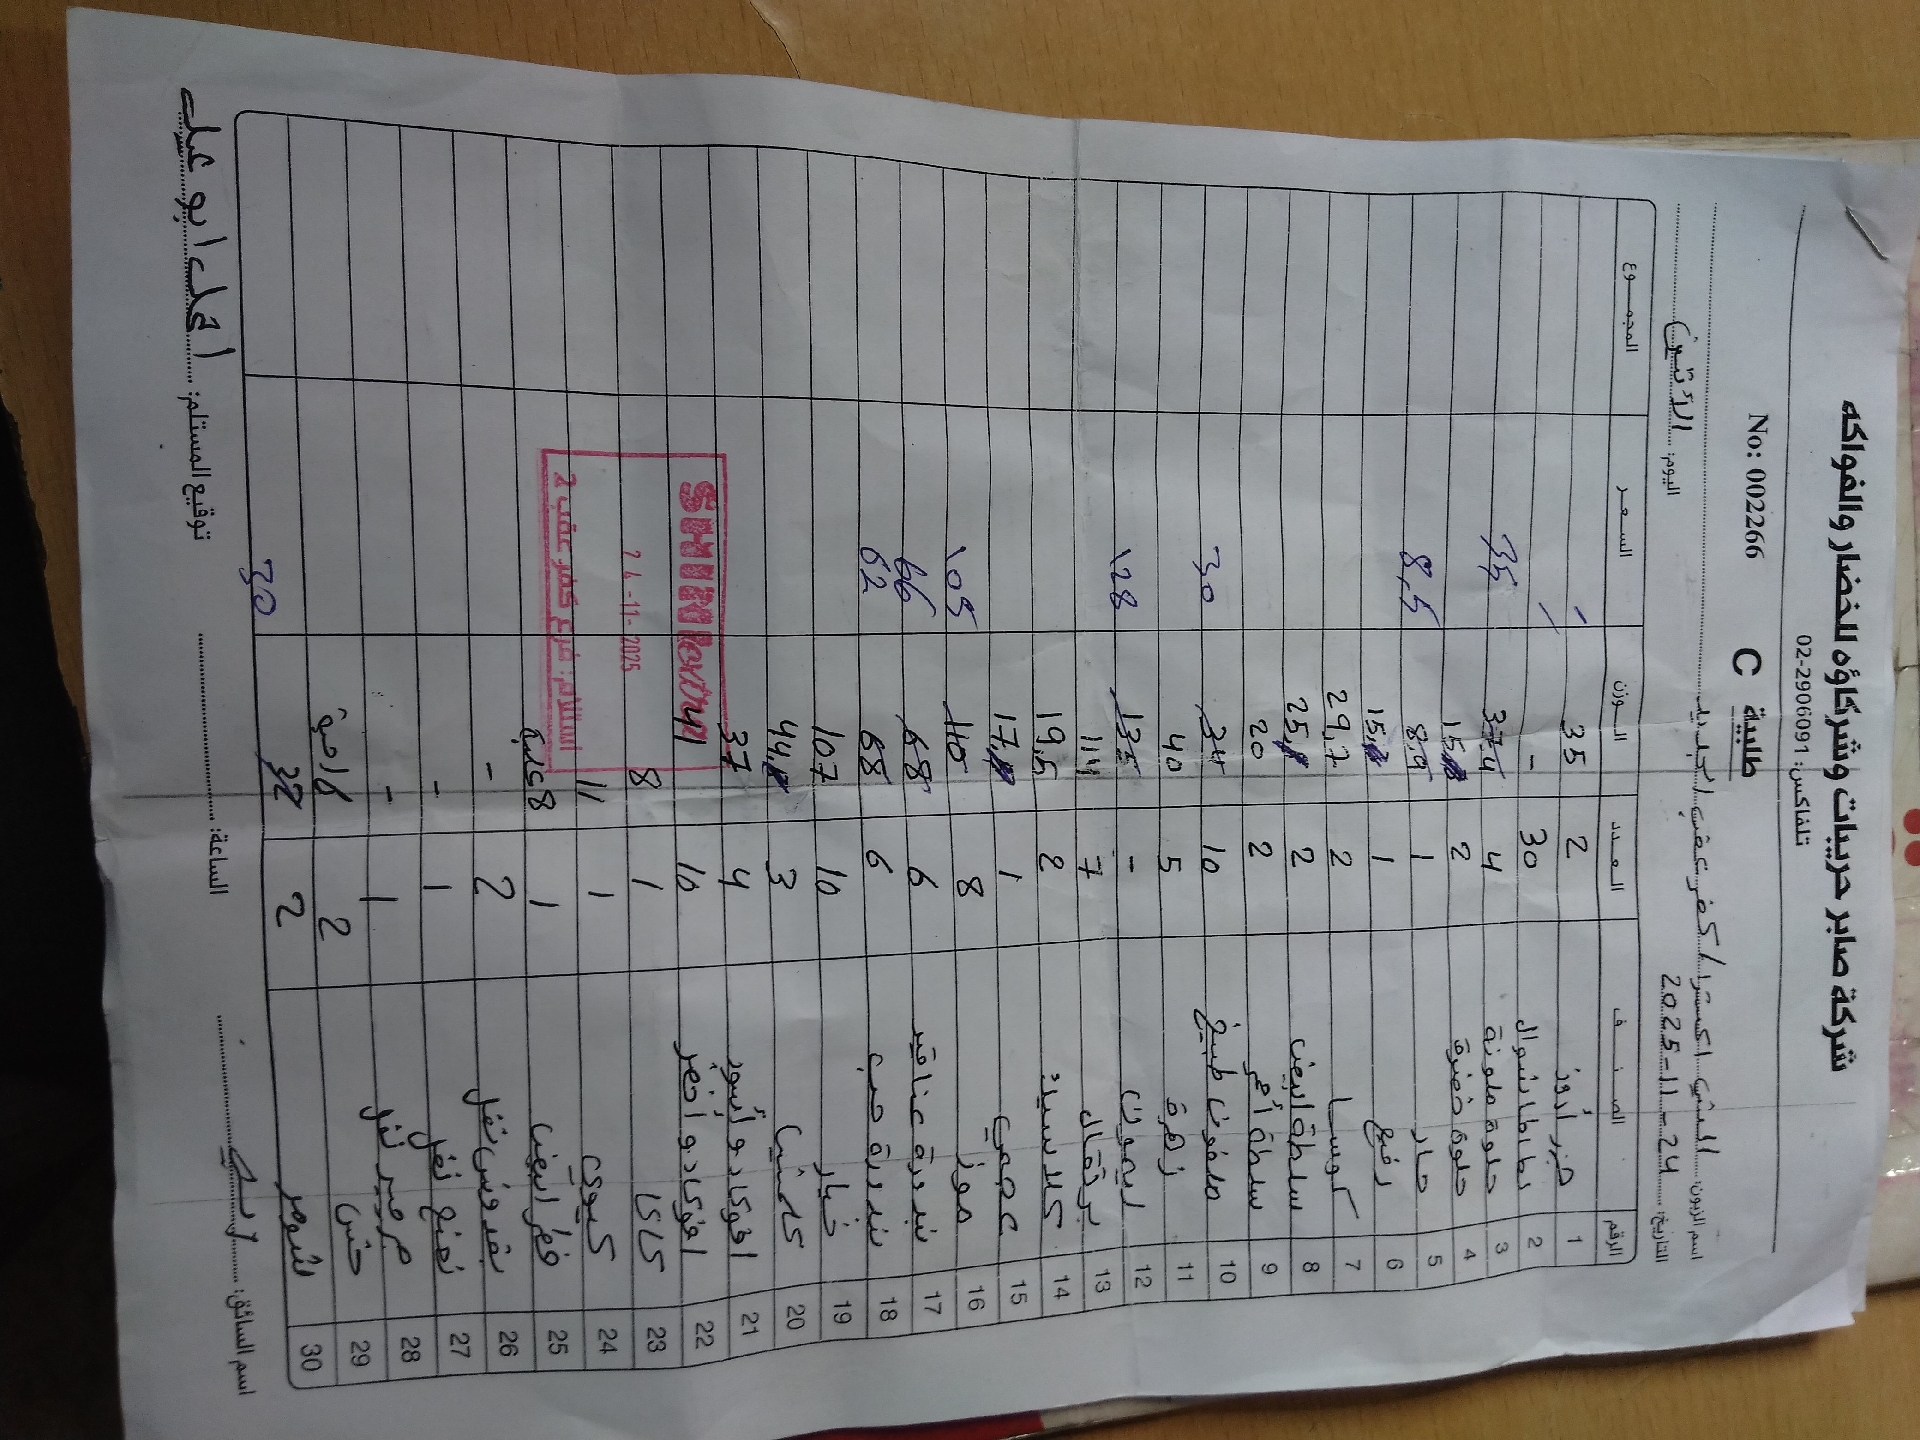 شركة صابر حريبات وشركاؤه للخضار والفواكه
تلفاكس: 02-2906091
No: 002266 طلبية C
اسم الزبون: الشني اكسترا / كفر عقب الجديد
التاريخ: 24-11-2025 اليوم: الاثنين
الرقم الصنف العدد الوزن السعر المجموع
1 جزر أروز 2 35
2 بطاطا شوال 30 -
3 حلوة ملونة 4 37,4 35
4 حلوة خضرة 2 15
5 حار 1 8,9 8,5
6 رفيع 1 15
7 كوسا 2 29,7
8 سلطة ابيض 2 25
9 سلطة أحمر 2 20
10 ملفوف طبيخ 10 34 30
11 زهرة 5 40
12 ليمون - 135 128
13 برتقال 7 114
14 كلاسيد 2 19,5
15 عجمي 1 17
16 موز 8 110 105
17 بندورة عناقيد 6 68 66
18 بندورة حب 6 68 62
19 خيار 10 107
20 كلمنتينا 3 44
21 افوكادو أسود 4 37
22 افوكادو أخضر 10 41
23 كاكا 1 8
24 كيوي 1 11
25 فطر ابيض 1 8 علبة
26 بقدونس نفل 2 -
27 نعنع نفل 1 -
28 جرجير نفل 1 -
29 خس 2
30 الثومر 2 32 30
SHINI extra
24-11-2025
استلام: فرع كفر عقب 2
اسم السائق: الساعة: توقيع المستلم: